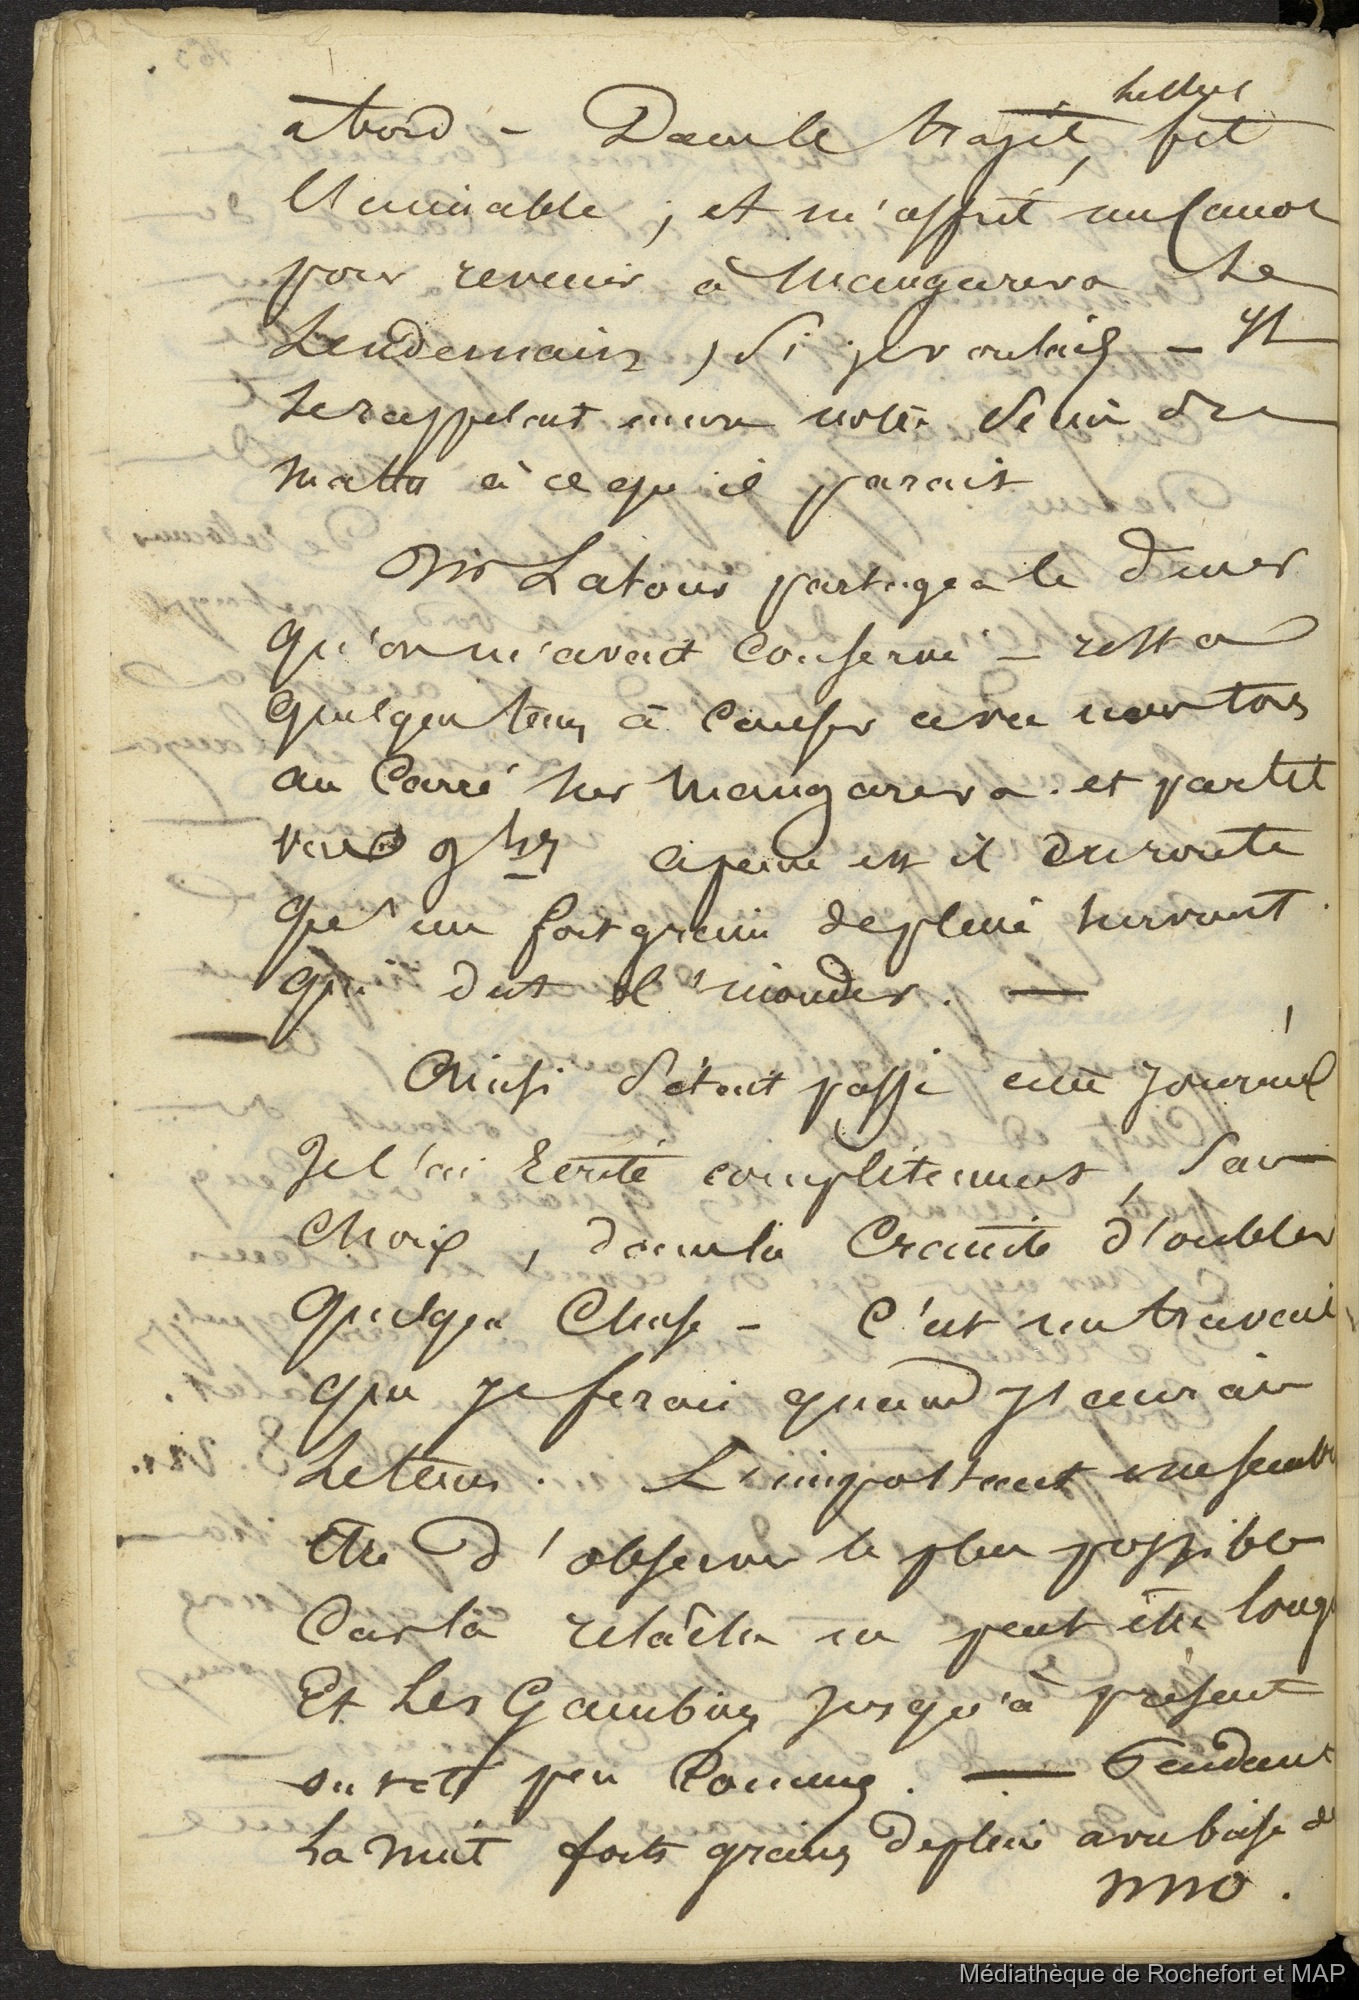 abord - Dans le trajet, fit
l'aimable ; et m'offrit un canot
pour revenir à Mangareva le
lendemain, si je voulais - Il
se rappelait encore notre du
matin à ce qu'il parait
Mr Latour partagea le diner
qu'on m'avait conservé - resta
quelque tems à causer avec nous tous
au Carré sur Mangareva. et partit
vers 9 hrs a peine est il en route
qu'un fort grain de pluie survint
qui dut l'inonder. —
Ainsi s'était passé cette journée
Je l'ai écrite complètement, sans
choix, dans la crainte d'oublier
quelque chose - C'est un travail
que je ferai quand j'en aurai
le tems. L'important me semble
être d'observer le plus possible
Car la relâche ne peut être longue
Et les Gambier jusqu'à présent
peu connus. — Pendant
la nuit forts grains de pluie avec brise de
NNO.
Médiathèque de Rochefort et MAP